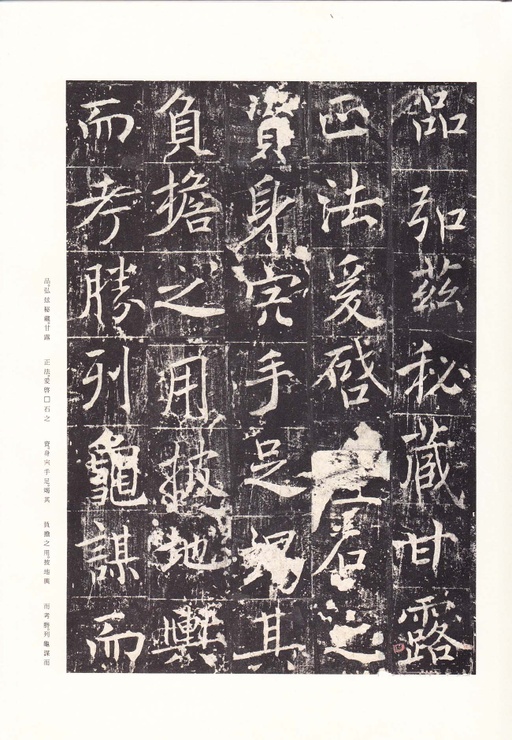 品弘茲秘蔵甘露
正法爰啓 石之
資身宍手足竭其
負擔之用披地輿
而考勝列龜謀而
品弘茲秘蔵甘露 正法爰啓□石之 資身宍手足竭其 負擔之用披地輿 而考勝列龜謀而